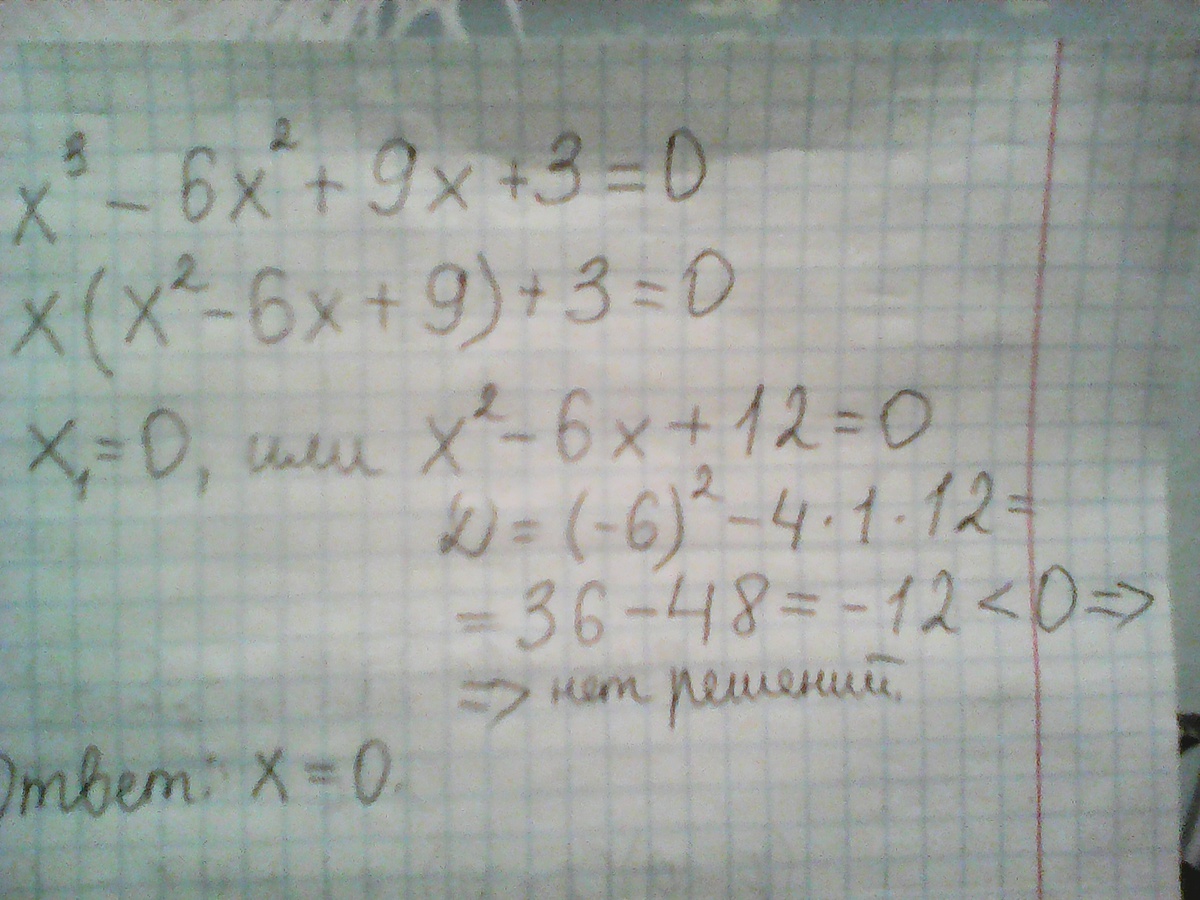 x³ - 6x² + 9x + 3 = 0
x(x² - 6x + 9) + 3 = 0
x₁ = 0, или x² - 6x + 12 = 0
D = (-6)² - 4·1·12 =
= 36 - 48 = -12 < 0 =>
=> нет решений.
Ответ: x = 0.